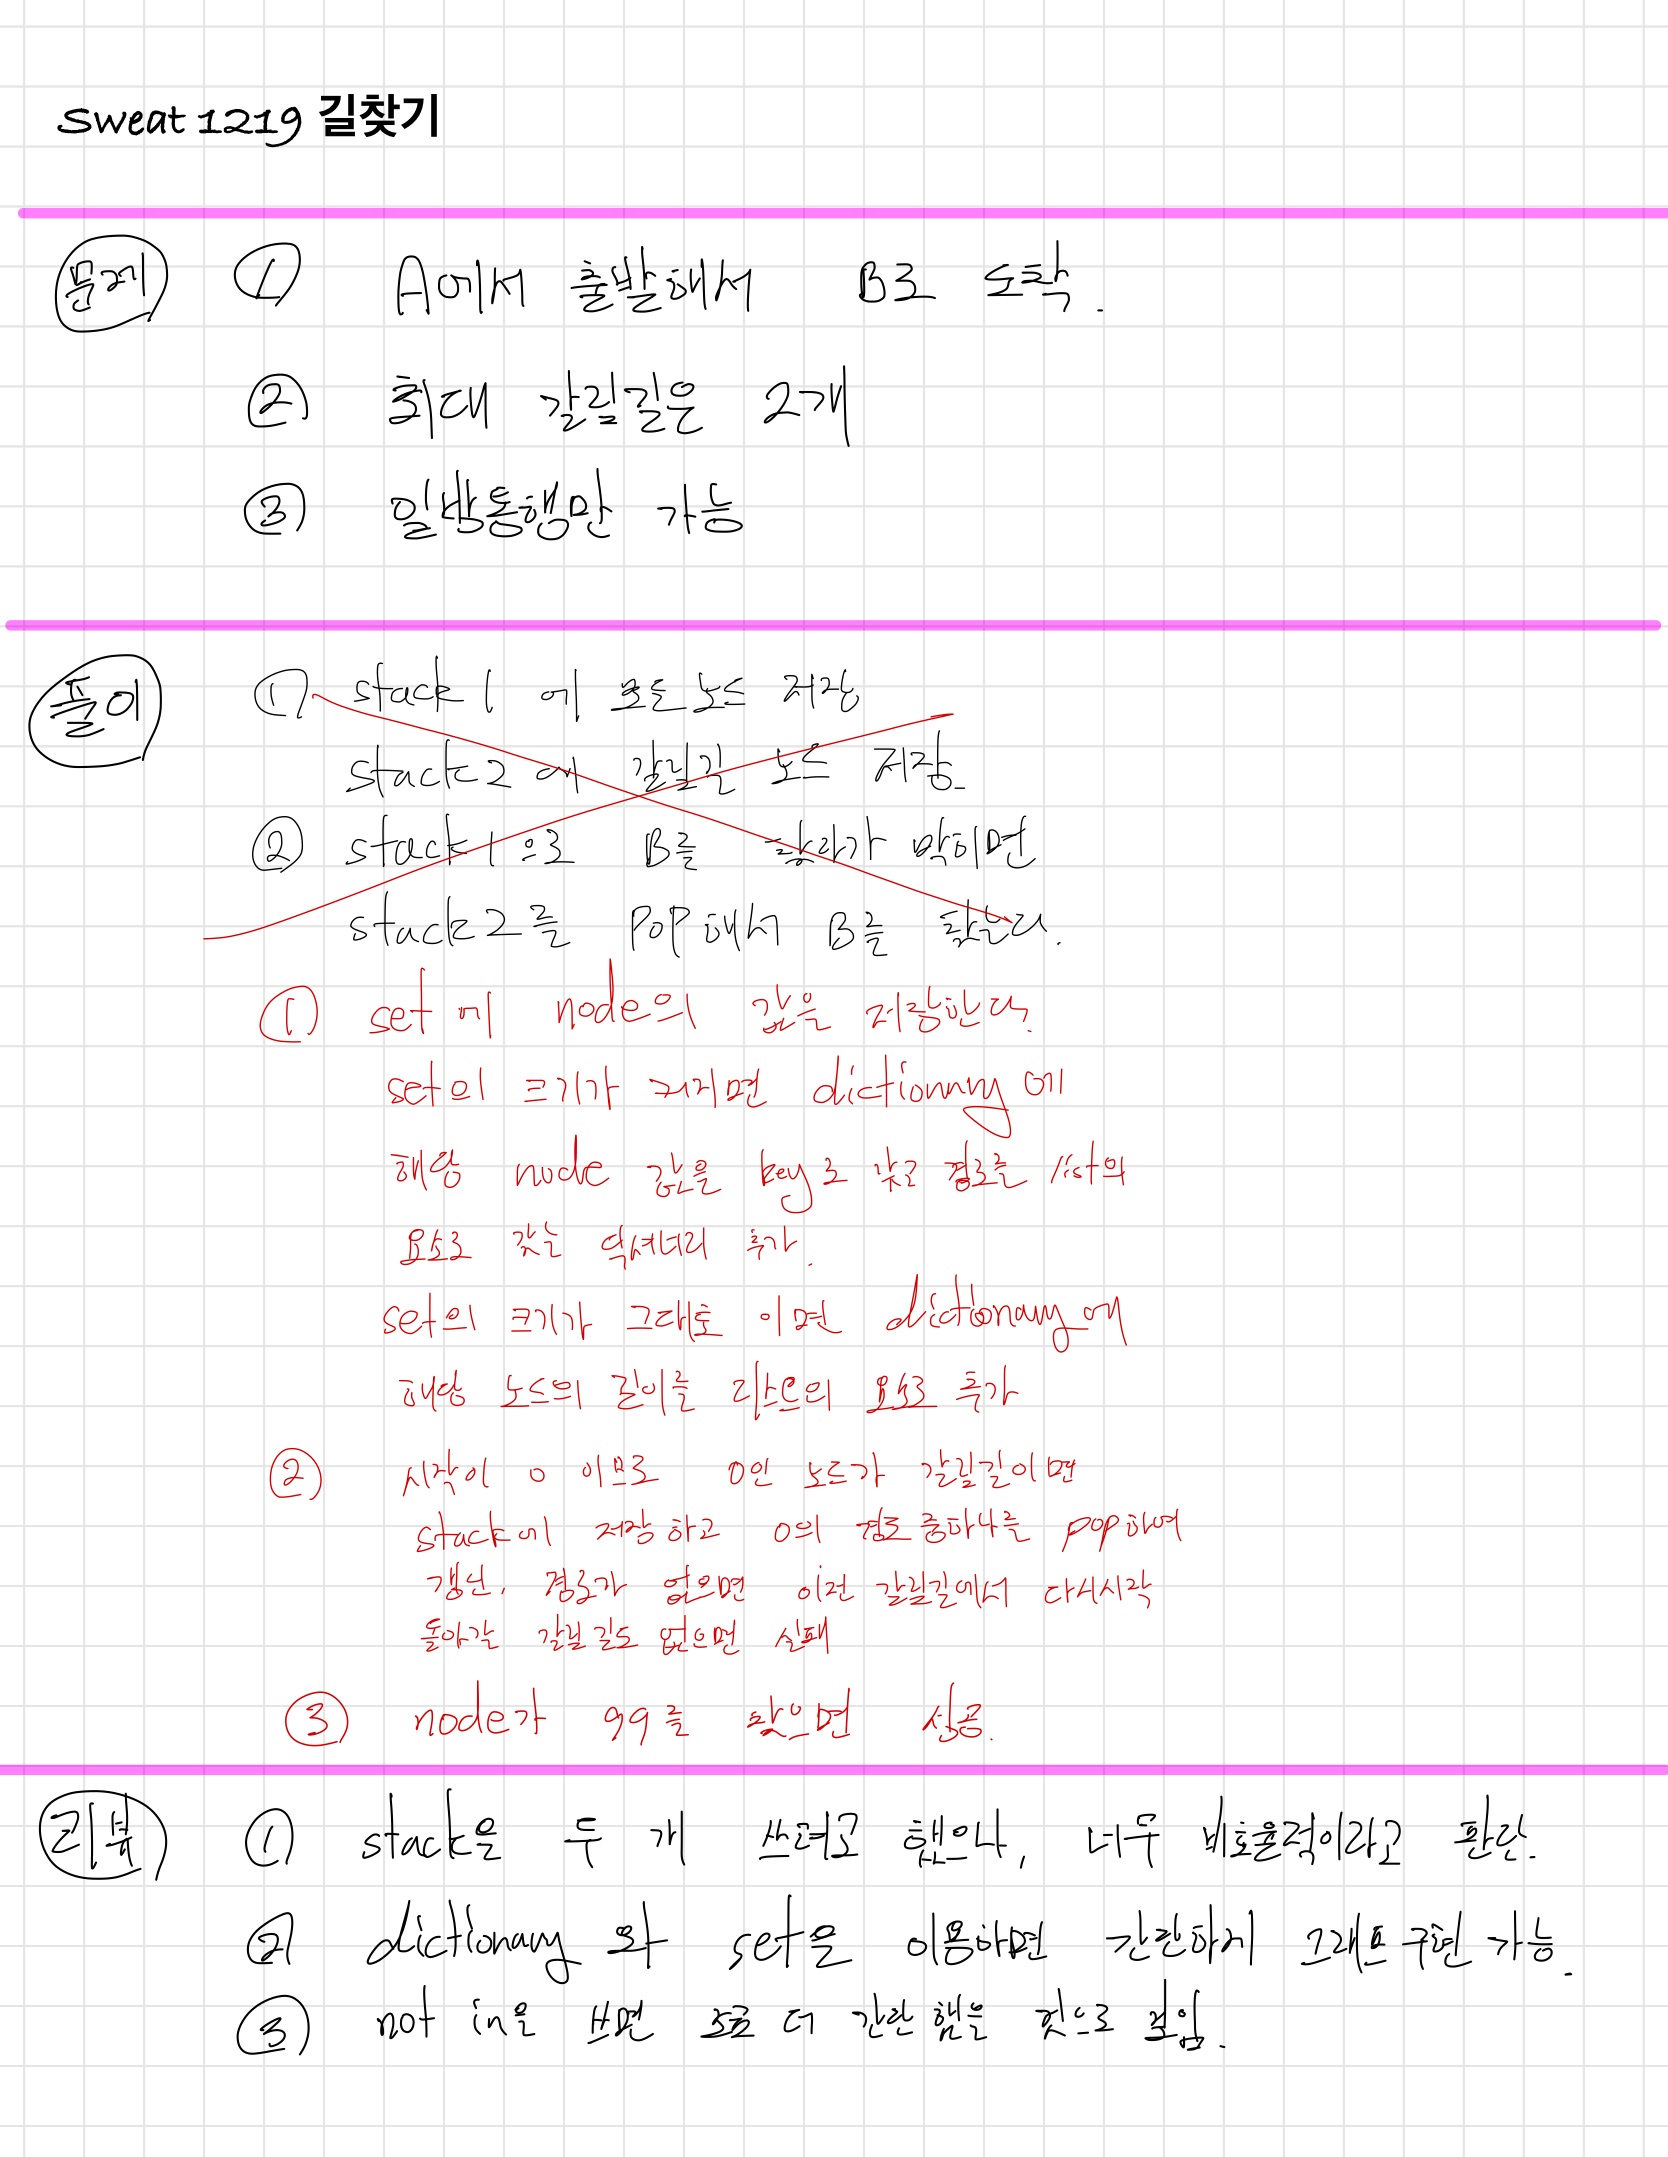 Sweat 1219 길찾기
문제 ① A에서 출발해서 B로 도착.
② 최대 갈림길은 2개
③ 일방통행만 가능
풀이 ① stack1 에 모든 노드 저장
stack2 에 갈림길 노드 저장.
② stack1으로 B를 찾다가 막히면
stack2를 pop해서 B를 찾는다.
① set에 node의 값을 저장한다.
set의 크기가 커지면 dictionary에
해당 node 값을 key로 갖고 경로를 list의
요소로 갖는 딕셔너리 추가.
set의 크기가 그대로 이면 dictionary에
해당 노드의 길이를 리스트의 요소로 추가
② 시작이 0 이므로 0인 노드가 갈림길이면
stack에 저장하고 0의 경로 중하나를 pop하여
갱신, 경로가 없으면 이전 갈림길에서 다시시작
돌아갈 갈림길도 없으면 실패
③ node가 99를 찾으면 성공.
리뷰 ① stack을 두 개 쓰려고 했으나, 너무 비효율적이라고 판단.
② dictionary 와 set을 이용하면 간단하게 그래프 구현 가능.
③ not in을 쓰면 조금 더 간단했을 것으로 보임.